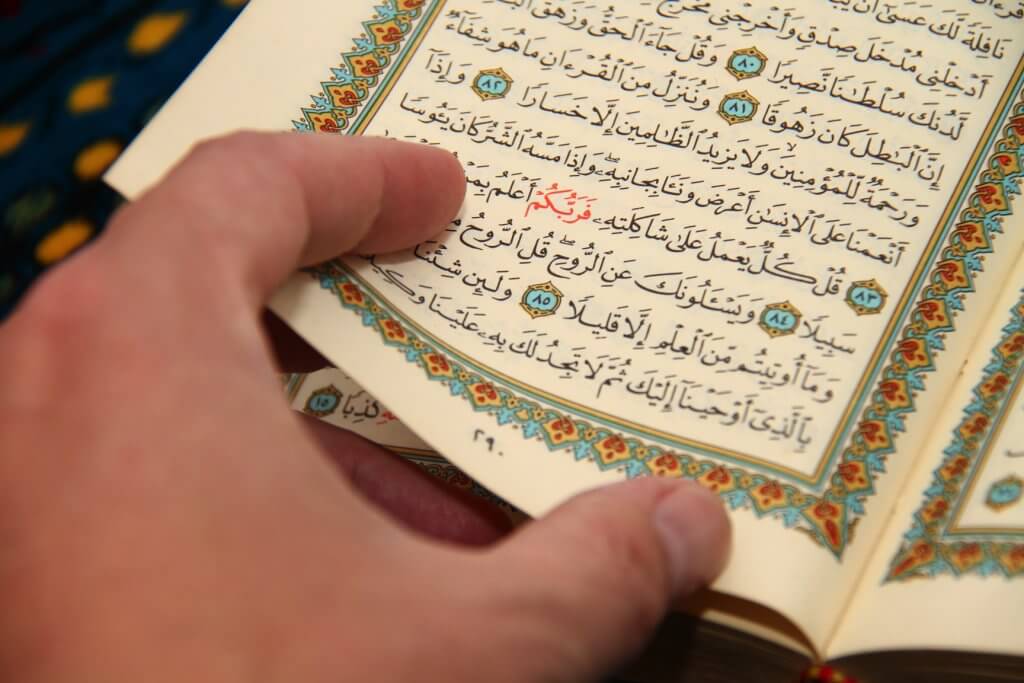 نَافِلَةً لَّكَ عَسَىٰٓ أَن
أَدْخِلْنِى مُدْخَلَ صِدْقٍ وَأَخْرِجْنِى مُخْرَجَ
لَّدُنكَ سُلْطَٰنًا نَّصِيرًا ٨٠ وَقُلْ جَآءَ ٱلْحَقُّ وَزَهَقَ
إِنَّ ٱلْبَٰطِلَ كَانَ زَهُوقًا ٨١ وَنُنَزِّلُ مِنَ ٱلْقُرْءَانِ مَا هُوَ شِفَآءٌ
وَرَحْمَةٌ لِّلْمُؤْمِنِينَ ۙ وَلَا يَزِيدُ ٱلظَّٰلِمِينَ إِلَّا خَسَارًا ٨٢ وَإِذَآ
أَنْعَمْنَا عَلَى ٱلْإِنسَٰنِ أَعْرَضَ وَنَـَٔا بِجَانِبِهِۦ ۖ وَإِذَا مَسَّهُ ٱلشَّرُّ كَانَ يَـُٔوسًا
٨٣ قُلْ كُلٌّ يَعْمَلُ عَلَىٰ شَاكِلَتِهِۦ فَرَبُّكُمْ أَعْلَمُ بِمَنْ
سَبِيلًا ٨٤ وَيَسْـَٔلُونَكَ عَنِ ٱلرُّوحِ ۖ قُلِ ٱلرُّوحُ
وَمَآ أُوتِيتُم مِّنَ ٱلْعِلْمِ إِلَّا قَلِيلًا ٨٥ وَلَئِن شِئْنَا
بِٱلَّذِىٓ أَوْحَيْنَآ إِلَيْكَ ثُمَّ لَا تَجِدُ لَكَ بِهِۦ عَلَيْنَا وَكِيلًا
٢٩٠
كَذِبًا ١٥